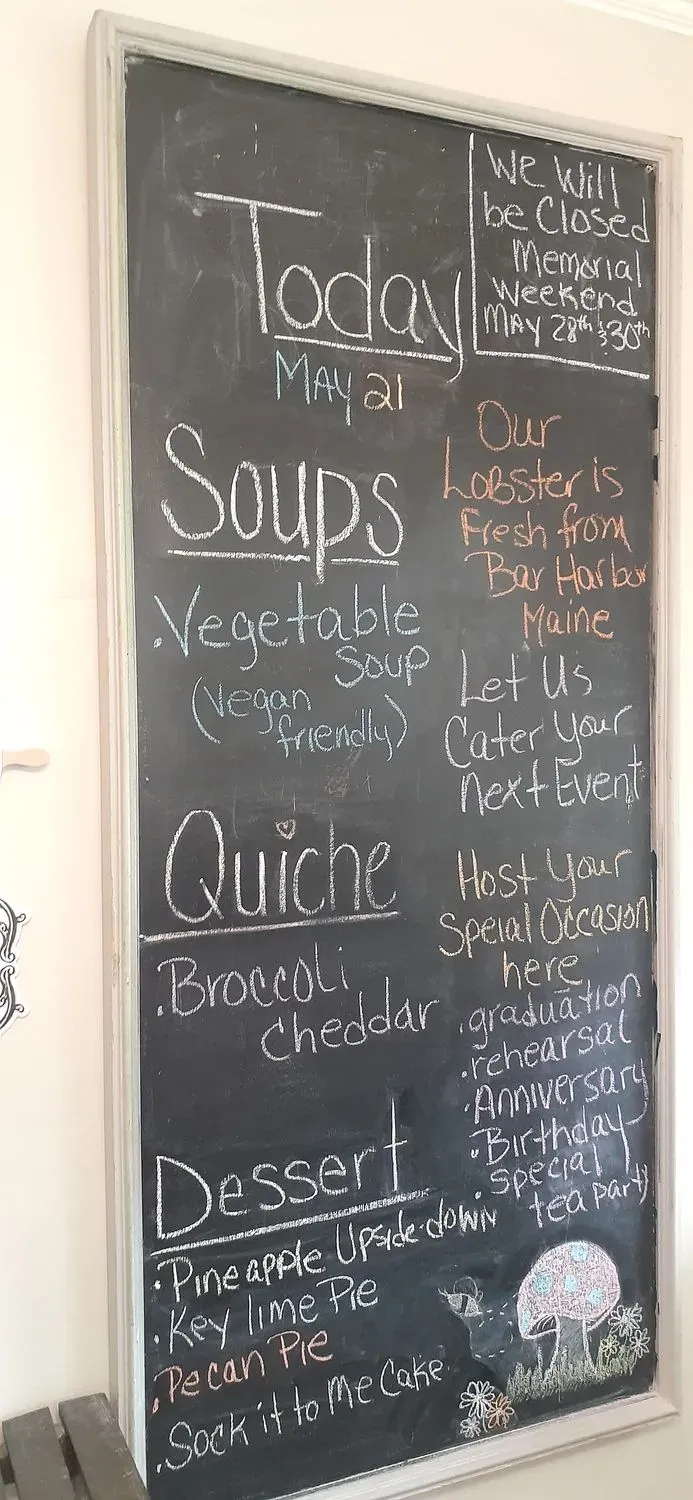 Today
MAY 21
We Will
be Closed
Memorial
Weekend
MAY 28th & 30th
Soups
. Vegetable
Soup
(vegan
friendly)
Quiche
. Broccoli
cheddar
Dessert
. Pineapple Upside-down
. Key lime Pie
. Pecan Pie
. Sock it to Me Cake
Our
Lobster is
Fresh from
Bar Harbor
Maine
Let Us
Cater Your
next Event
Host Your
Speial Occasion
here
. graduation
. rehearsal
. Anniversary
. Birthday
. special
tea party